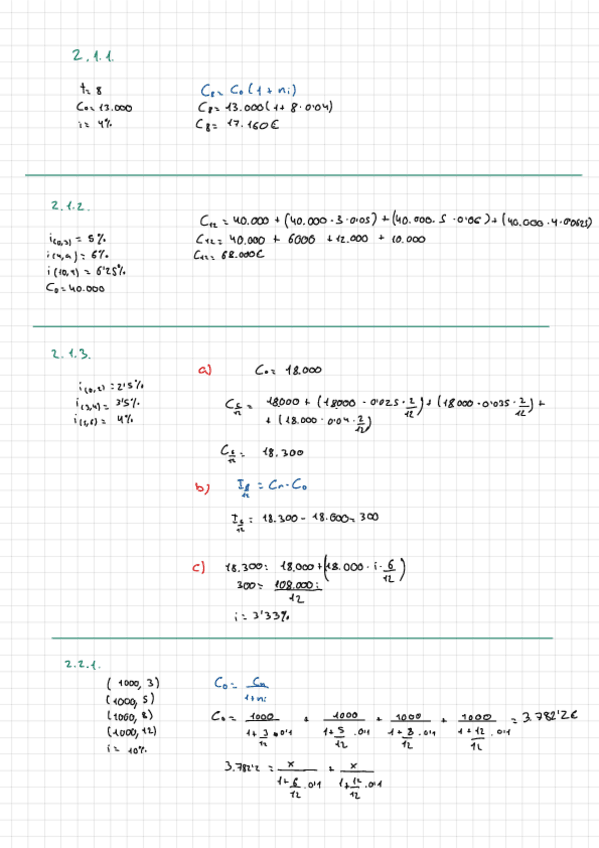 2.1.1.
t= 8
C₀= 13.000
i= 4%
C₈= C₀(1+ni)
C₈= 13.000(1+8·0'04)
C₈= 17.160€
2.1.2.
i(0,3) = 5%
i(4,9) = 6%
C₀=40.000
C₁₂ = 40.000 + (40.000·3·0'05)+(40.000·5·0'06)+(40.000·4·0'0625)
C₁₂= 40.000 + 6000 +12.000 + 10.000
C₁₂= 68.000€
2.1.3.
i(0,2) = 2'5%
i(3,4) = 3'5%
a) C₀= 18.000
C6/12 = 18.000 + (18000 · 0'025 · 2/12) + (18000 · 0'035 · 2/12) +
+ (18.000 · 0'04 · 2/12)
C6/12 = 18.300
b) I6/12 = Cn-C₀
I6/12 = 18.300 - 18.000= 300
c) 18.300= 18.000+(18.000 · i · 6/12)
300= 108.000i/12
i= 3'33%
2.2.1.
(1000, 3)
(1000, 5)
(1000, 8)
(1000, 12)
i= 10%
C₀= Cn/1+ni
C₀= 1000/1+3/12·0'1 + 1000/1+5/12·0'1 + 1000/1+8/12·0'1 + 1000/1+12/12·0'1 = 3.782'2€
3.782'2 = x/1+6/12·0'1 + x/1+12/12·0'1